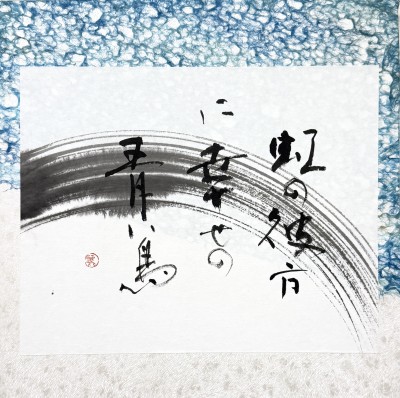 虹の彼方
に幸せの
青い鳥